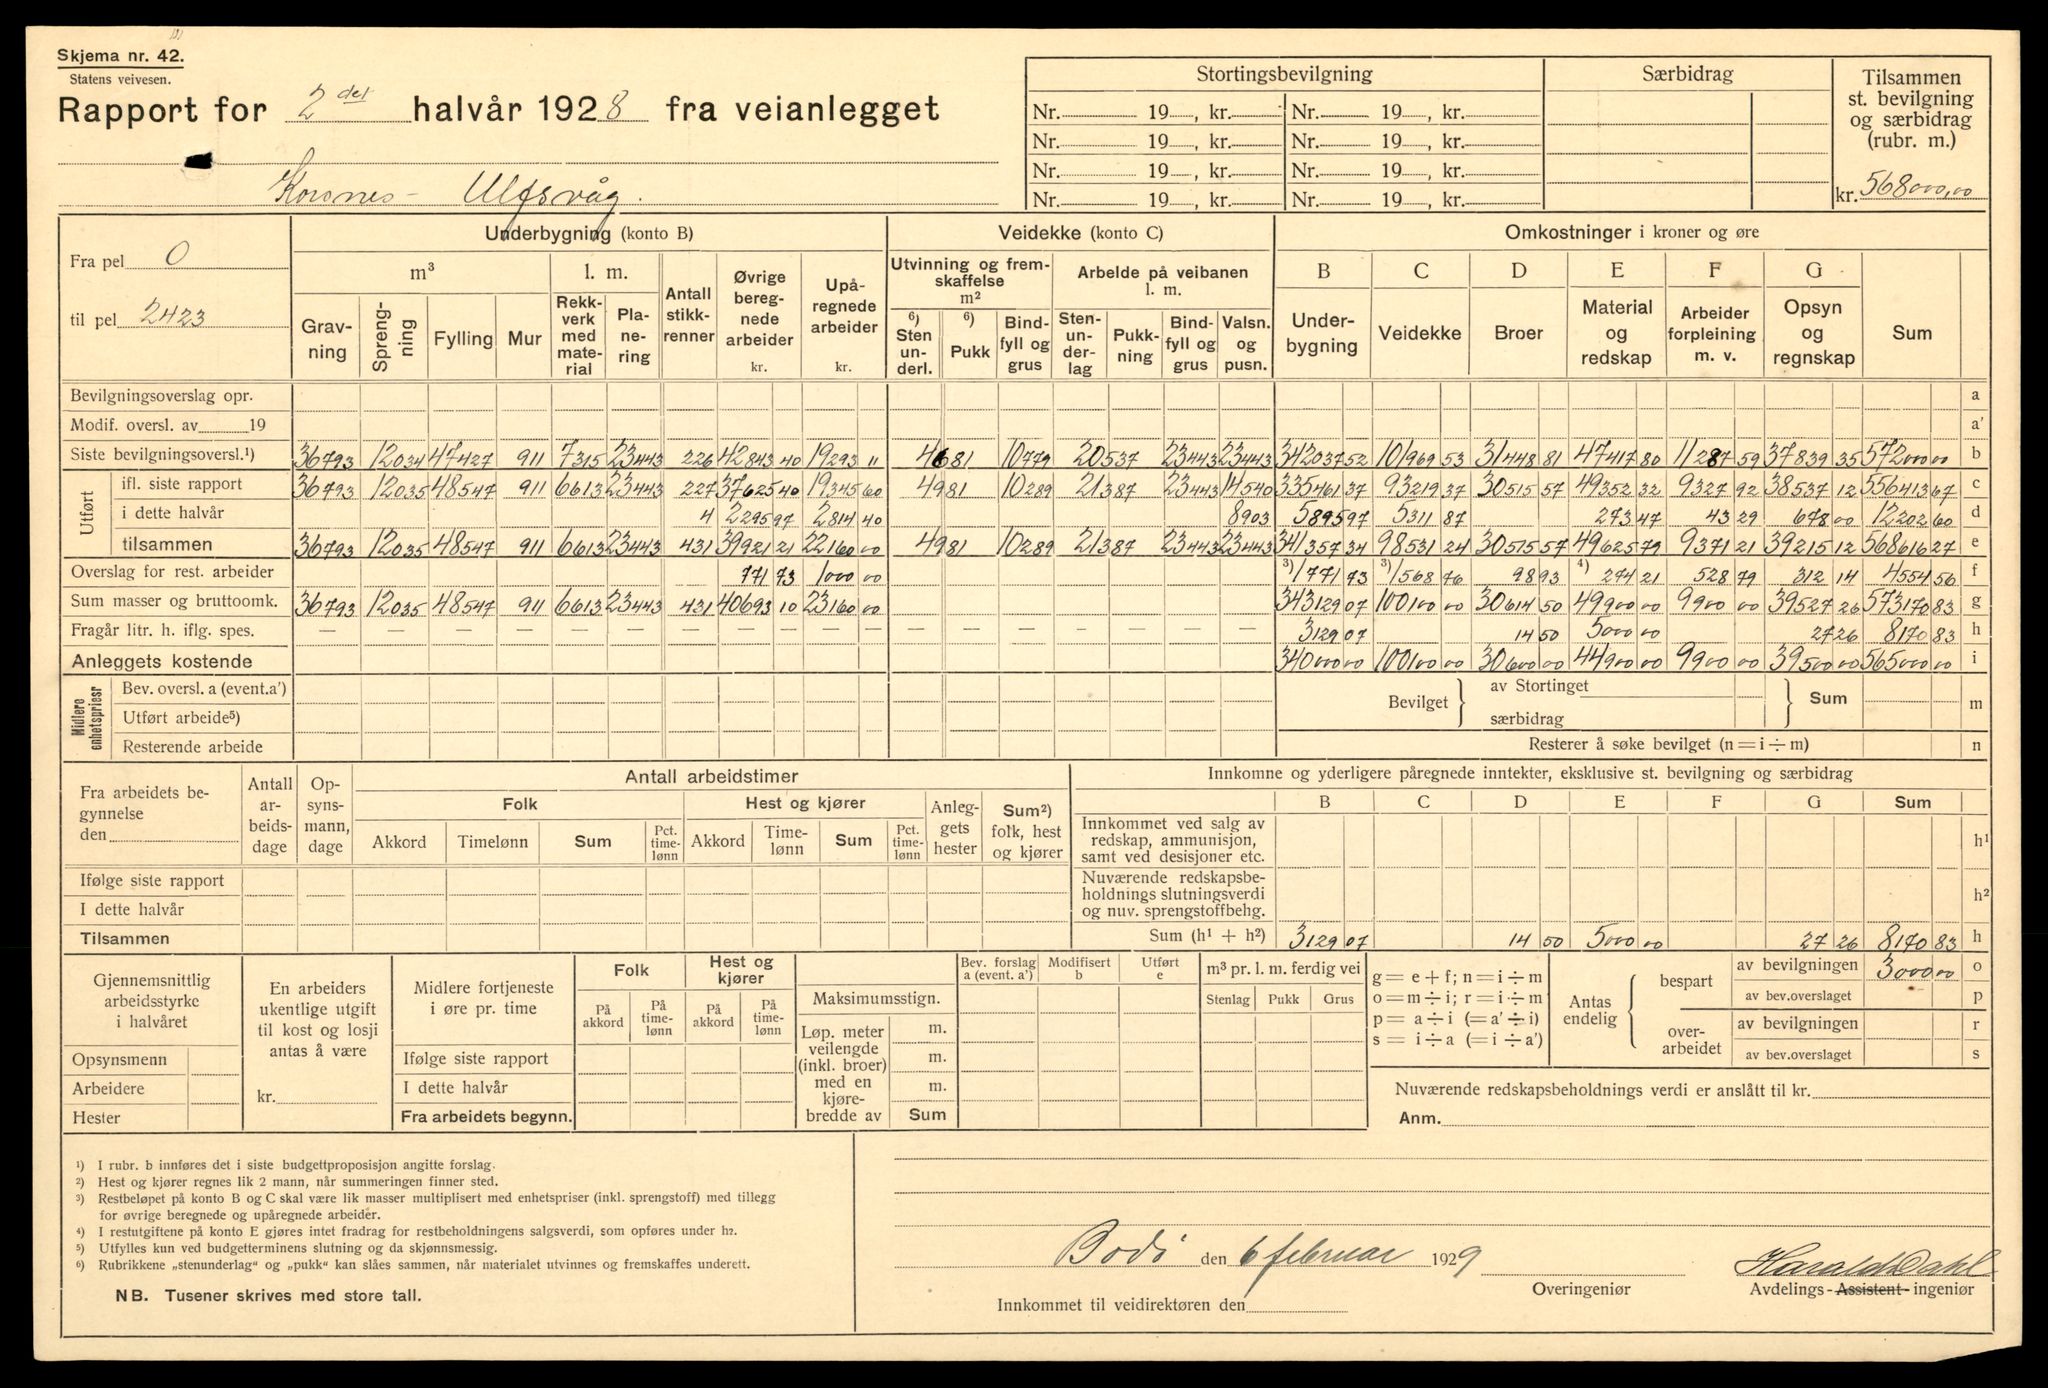 Skjema nr. 42.
Statens veivesen.
Rapport for 2det halvår 1928 fra veianlegget
Korsnes - Ulfsvåg.
Stortingsbevilgning
Særbidrag
Tilsammen st. bevilgning og særbidrag (rubr. m.)
Nr. 19 , kr. Nr. 19 , kr.
Nr. 19 , kr. Nr. 19 , kr.
Nr. 19 , kr. Nr. 19 , kr.
Nr. 19 , kr. Nr. 19 , kr.
kr. 568000,00
Fra pel 0
til pel 2423
Underbygning (konto B)
Veidekke (konto C)
Omkostninger i kroner og øre
m³ l. m. Antall stikkrenner Øvrige beregnede arbeider kr. Upåregnede arbeider kr.
Gravning Sprengning Fylling Mur Rekkverk med material Planering
Utvinning og fremskaffelse m² Arbeide på veibanen l. m.
⁶) Sten underl. ⁶) Pukk Bindfyll og grus Stenunderlag Pukkning Bindfyll og grus Valsn. og pusn.
B C D E F G
Underbygning Veidekke Broer Material og redskap Arbeider forpleining m. v. Opsyn og regnskap Sum
Bevilgningsoverslag opr. a
Modif. oversl. av 19 a'
Siste bevilgningsoversl.¹) 36793 12034 47427 911 7315 23443 226 42843 40 19293 11 4681 10779 20537 23443 23443 342037 52 101969 53 31448 81 47417 80 11287 59 37839 35 572000 00 b
Utført
ifl. siste rapport 36793 12035 48547 911 6613 23443 227 37625 40 19345 60 4981 10289 21387 23443 14540 335461 37 93219 37 30515 57 49352 32 9327 92 38537 12 556413 67 c
i dette halvår 4 2295 97 2814 40 8903 5895 97 5311 87 273 47 43 29 678 00 12202 60 d
tilsammen 36793 12035 48547 911 6613 23443 431 39921 21 22160 00 4981 10289 21387 23443 23443 341357 34 98531 24 30515 57 49625 79 9371 21 39215 12 568616 27 e
Overslag for rest. arbeider 771 73 1000 00 ³) 1771 73 ³) 1568 76 98 93 ⁴) 274 21 528 79 312 14 4554 56 f
Sum masser og bruttoomk. 36793 12035 48547 911 6613 23443 431 40693 10 23160 00 343129 07 100100 00 30614 50 49900 00 9900 00 39527 26 573170 83 g
Fragår litr. h. iflg. spes. — — — — — — — — — — — — — — — — 3129 07 14 50 5000 00 27 26 8170 83 h
Anleggets kostende 340000 00 100100 00 30600 00 44900 00 9900 00 39500 00 565000 00 i
Midlere enhetspriser
Bev. oversl. a (event. a')
Utført arbeide⁵)
Resterende arbeide
Bevilget av Stortinget særbidrag Sum m
Resterer å søke bevilget (n = i ÷ m) n
Fra arbeidets begynnelse den
Antall arbeidsdage
Opsynsmann, dage
Antall arbeidstimer
Folk Hest og kjører Anleggets hester Sum²) folk, hest og kjører
Akkord Timelønn Sum Pct. timelønn Akkord Timelønn Sum Pct. timelønn
Ifølge siste rapport
I dette halvår
Tilsammen
Innkomne og yderligere påregnede inntekter, eksklusive st. bevilgning og særbidrag
B C D E F G Sum
Innkommet ved salg av redskap, ammunisjon, samt ved desisjoner etc. h¹
Nuværende redskapsbeholdnings slutningsverdi og nuv. sprengstoffbehg. h²
Sum (h¹ + h²) 3129 07 14 50 5000 00 27 26 8170 83 h
Gjennemsnittlig arbeidsstyrke i halvåret
Opsynsmenn
Arbeidere
Hester
En arbeiders ukentlige utgift til kost og losji antas å være
kr.
Midlere fortjeneste i øre pr. time
Folk Hest og kjører
På akkord På timelønn På akkord På timelønn
Ifølge siste rapport
I dette halvår
Fra arbeidets begynn.
Bev. forslag a (event. a') Modifisert b Utført e
Maksimumsstign.
Løp. meter veilengde (inkl. broer) med en kjørebredde av
m.
m.
m.
Sum
m³ pr. l. m. ferdig vei
Stenlag Pukk Grus
g = e + f; n = i ÷ m
o = m ÷ i; r = i ÷ m
p = a ÷ i (= a' ÷ i)
s = i ÷ a (= i ÷ a')
Antas endelig
bespart av bevilgningen 3000 00 o
av bev.overslaget p
overarbeidet av bevilgningen r
av bev.overslaget s
Nuværende redskapsbeholdnings verdi er anslått til kr.
Anm.
¹) I rubr. b innføres det i siste budgettproposisjon angitte forslag.
²) Hest og kjører regnes lik 2 mann, når summeringen finner sted.
³) Restbeløpet på konto B og C skal være lik masser multiplisert med enhetspriser (inkl. sprengstoff) med tillegg
for øvrige beregnede og upåregnede arbeider.
⁴) I restutgiftene på konto E gjøres intet fradrag for restbeholdningens salgsverdi, som opføres under h².
⁵) Utfylles kun ved budgetterminens slutning og da skjønnsmessig.
⁶) Rubrikkene „stenunderlag" og „pukk" kan slåes sammen, når materialet utvinnes og fremskaffes underett.
NB. Tusener skrives med store tall.
Bodö den 6 februar 1929
Overingeniør
Harald Dahl
Avdelings-Assistent-ingeniør
Innkommet til veidirektøren den